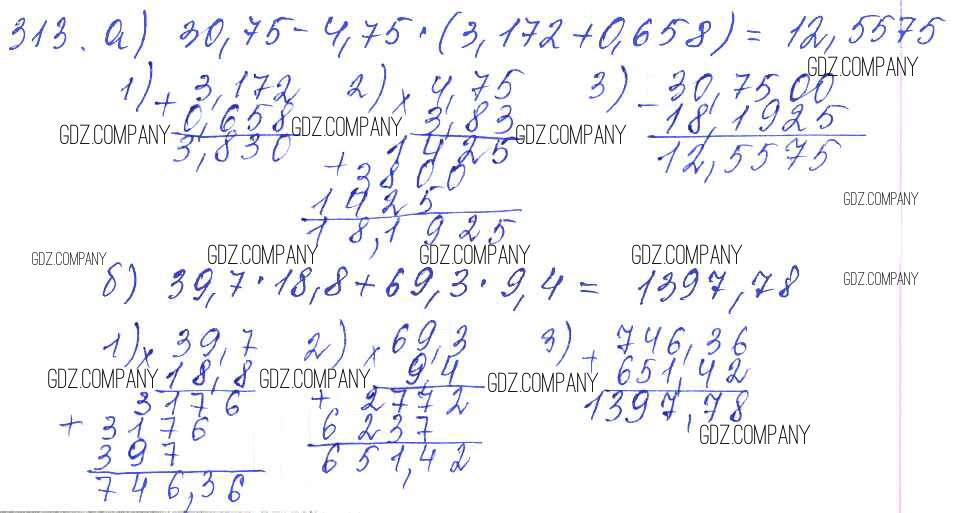 313. а) 30,75 - 4,75 · (3,172 + 0,658) = 12,5575
GDZ.COMPANY
1) + 3,172 2) × 4,75 3) - 30,7500
0,658 3,83 18,1925
GDZ.COMPANY GDZ.COMPANY GDZ.COMPANY
3,830 1425 12,5575
+ 3800
GDZ.COMPANY
1425
18,1925
GDZ.COMPANY GDZ.COMPANY GDZ.COMPANY GDZ.COMPANY
б) 39,7 · 18,8 + 69,3 · 9,4 = 1397,78
GDZ.COMPANY
1) × 39,7 2) × 69,3 3) + 746,36
18,8 9,4 651,42
GDZ.COMPANY GDZ.COMPANY GDZ.COMPANY
3176 + 2772 1397,78
+ 3176 6237
GDZ.COMPANY
397 651,42
746,36